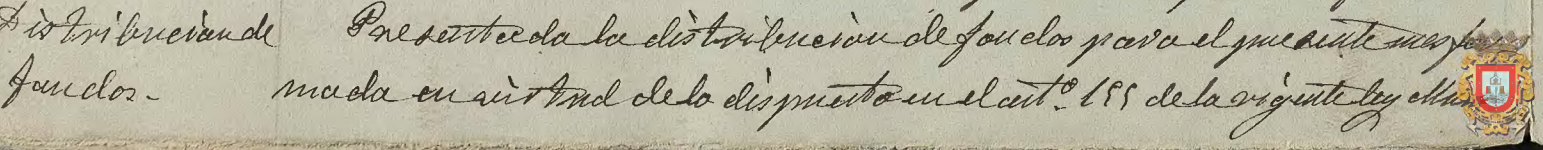 Distribución de Presentada la distribución de fondos para el presente mes for
fondos. mada en virtud de lo dispuesto en el artº. 155 de la vigente ley Mun